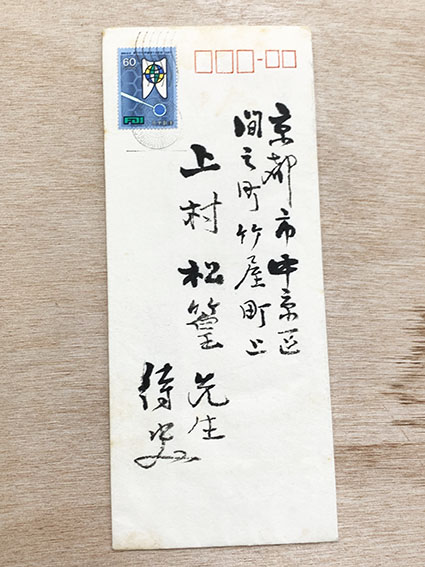 京都市中京区
間之町竹屋町上
上村松篁先生
侍史
60
FDI